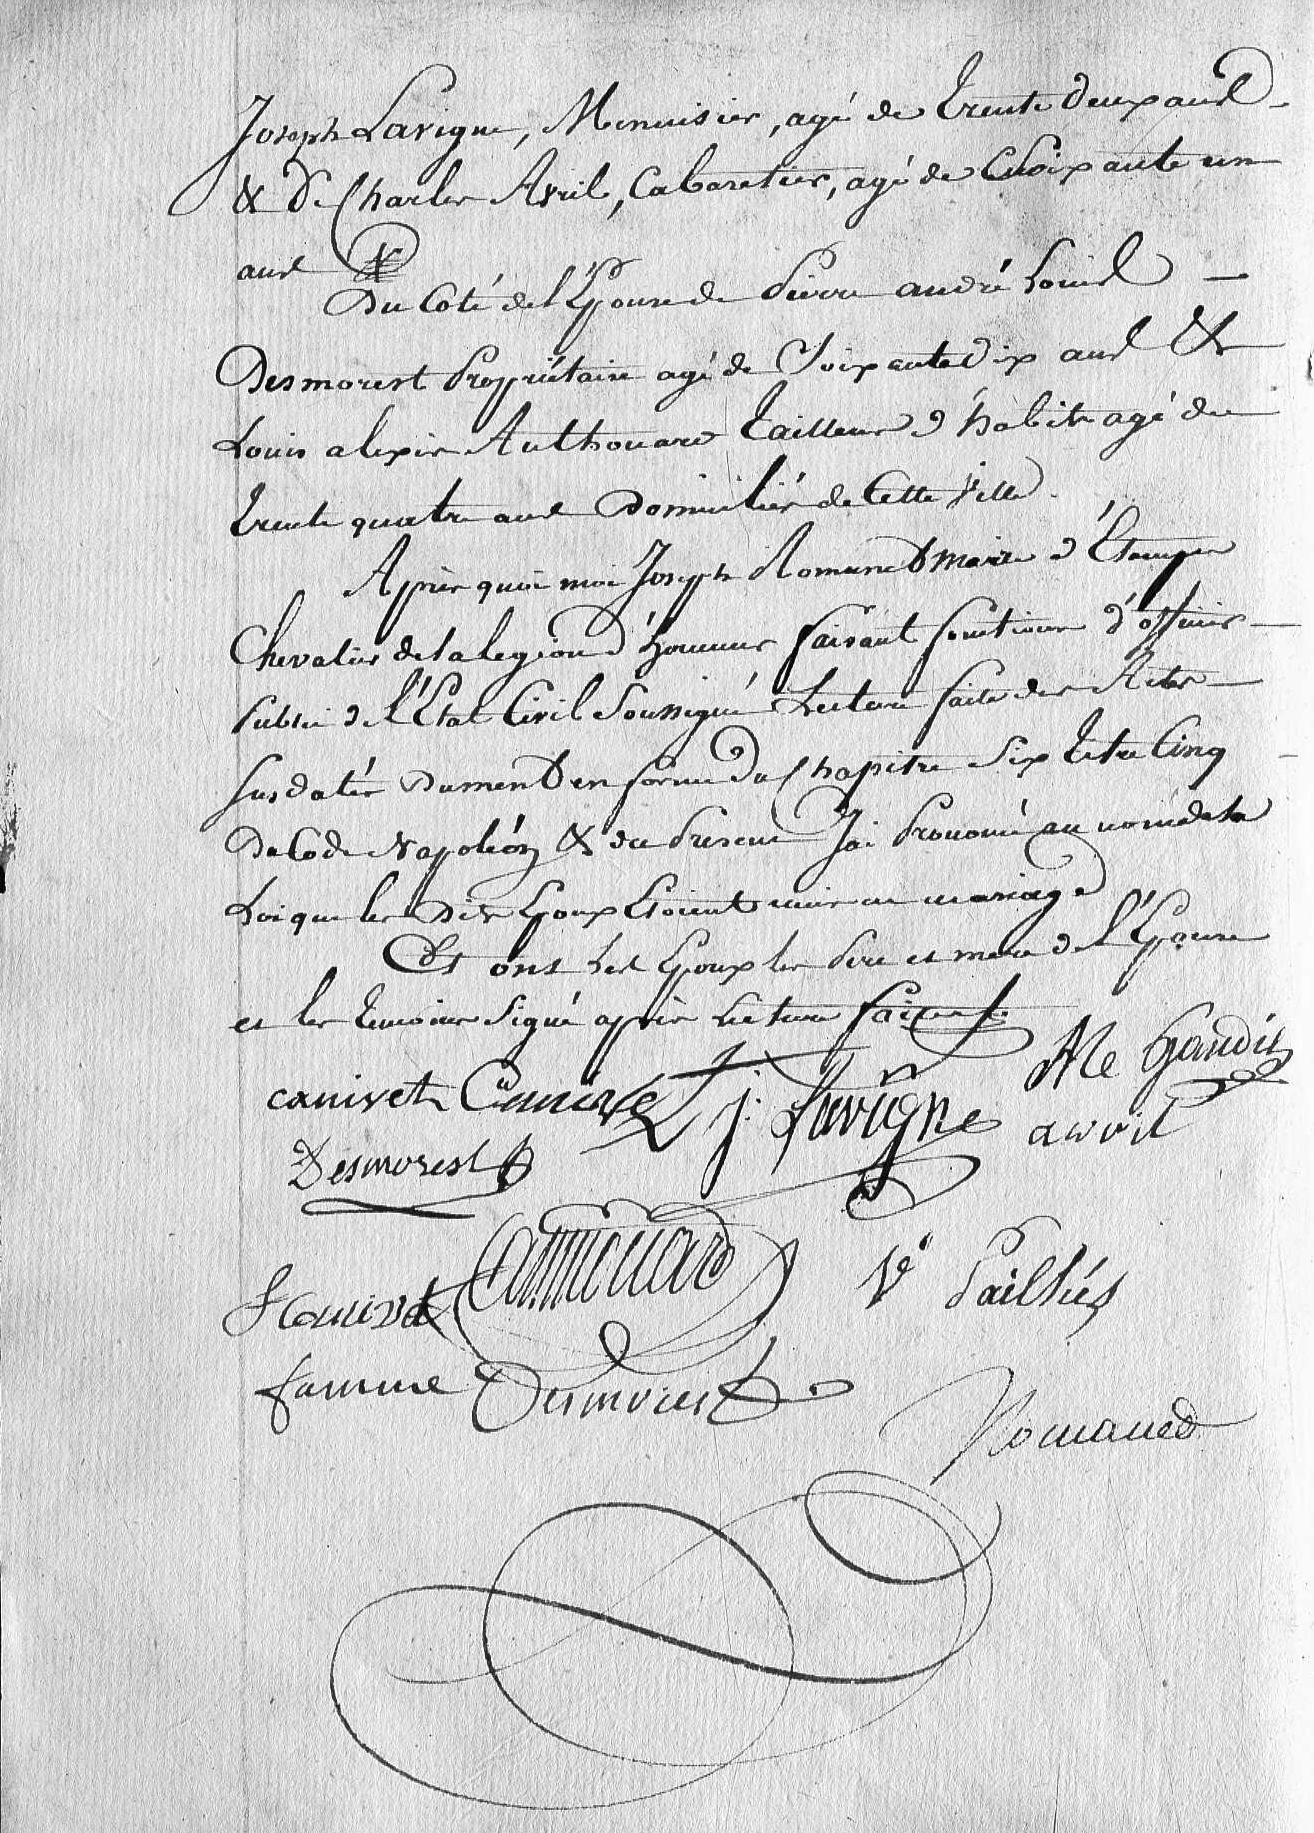 Joseph Lavigne, Menuisier, agé de Trente Deux ans
& De Charles Avril, Cabaretier, agé de Soixante un
ans
Du Coté de l'Épouse de Pierre andré Louis
Desmorest Propriétaire agé de Soixante Dix ans &
Louis alexis Authouard Tailleur d'habits agé de
Trente quatre ans Domiciliés de Cette Ville.
Après quoi moi Joseph Romanet maire d'Étampes
Chevalier de la legion d'honneur faisant fonctions d'officier
Public de l'État Civil Soussigné Lecture faite des Actes
Susdatés Dument en forme Du Chapitre Six Titre Cinq
Du Code Napoléon & du Présent J'ai Prononcé au nom de la
Loi que les Dits Epoux Etoient unis en mariage
Et ont Les Epoux les Pere et mere de l'Épouse
et les Temoins Signé après Lecture faite
canivet Canivet J: Lavigne Me Gaudit
Desmorest avril
authouard Ve Pailhés
f Canivet
famme Desmorest
Romanet